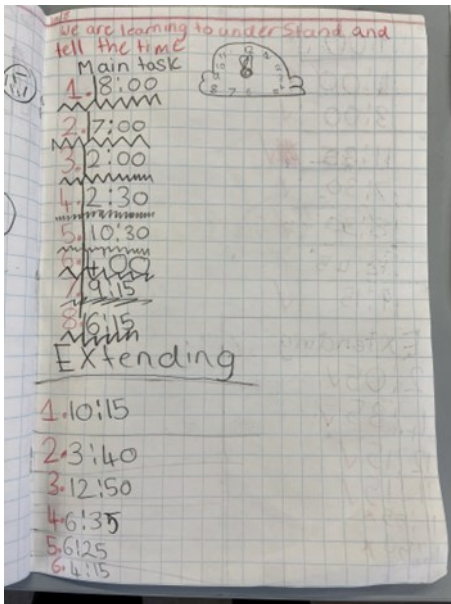 we are learning to under Stand and
tell the time
Main task
1. 8:00
2. 7:00
3. 2:00
4. 2:30
5. 10:30
6. 4:00
7. 9:15
8. 6:15
Extending
1. 10:15
2. 3:40
3. 12:50
4. 6:35
5. 6:25
6. 4:15